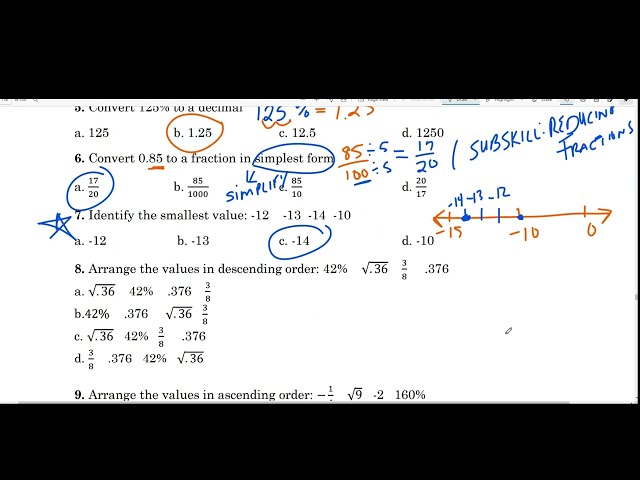 5. Convert 125% to a decimal 125% = 1.25
a. 125 b. 1.25 c. 12.5 d. 1250
6. Convert 0.85 to a fraction in simplest form 85/100 ÷5/÷5 = 17/20 / SUBSKILL: REDUCING FRACTIONS
a. 17/20 b. 85/1000 c. 85/10 d. 20/17
simplify
7. Identify the smallest value: -12 -13 -14 -10
a. -12 b. -13 c. -14 d. -10
-14 -13 -12
-15 -10 0
8. Arrange the values in descending order: 42% √.36 3/8 .376
a. √.36 42% .376 3/8
b.42% .376 √.36 3/8
c. √.36 42% 3/8 .376
d. 3/8 .376 42% √.36
9. Arrange the values in ascending order: √9 -2 160%